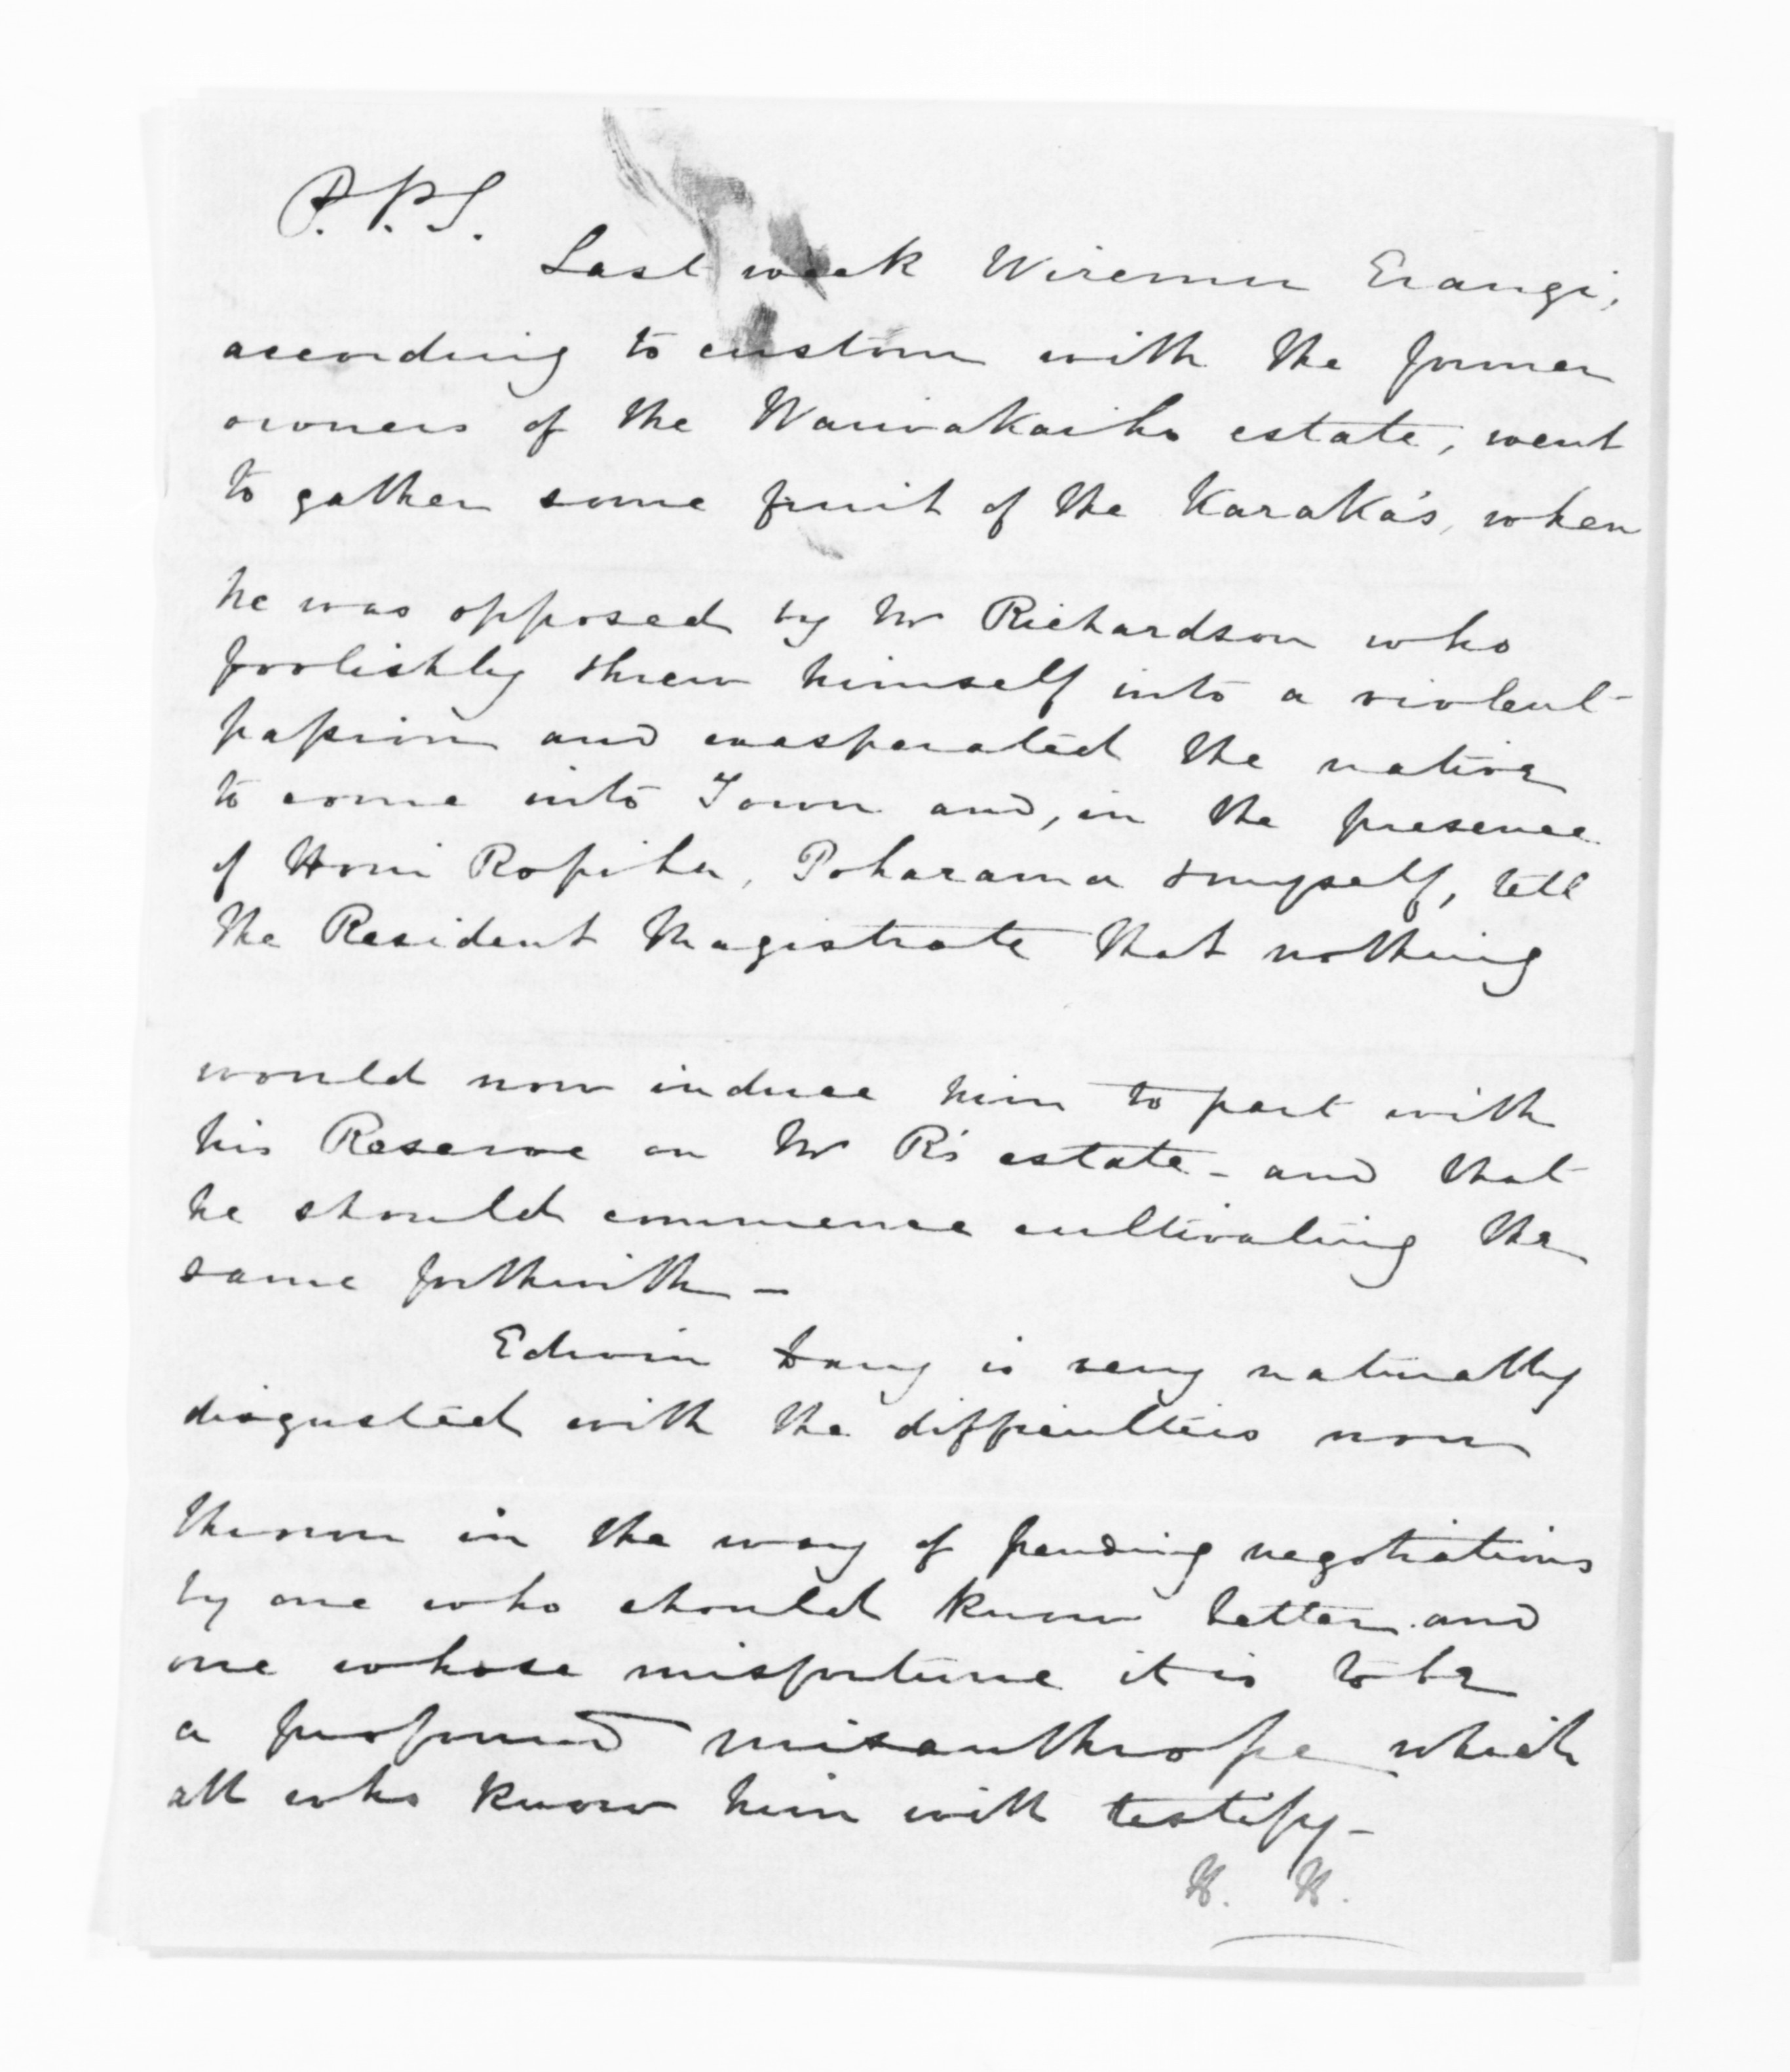 P.P.S.
Last week Wiremu Erangi,
according to custom with the former
owners of the Waiwakaiho estate, went
to gather some fruit of the Karaka's, when
he was opposed by Mr Richardson who
foolishly threw himself into a violent
passion and exasperated the native
to come into Town and, in the presence
of Honi Ropiha, Poharama & myself, tell
the Resident Magistrate that nothing
would now induce him to part with
his Reserve on Mr R's estate - and that
he should commence cultivating the
same forthwith -
Edwin is very naturally
disgusted with the difficulties now
thrown in the way of pending negotiations
by one who should know better and
one whose misfortune it is to be
a profound misanthrope which
all who know him will testify -
H. H.